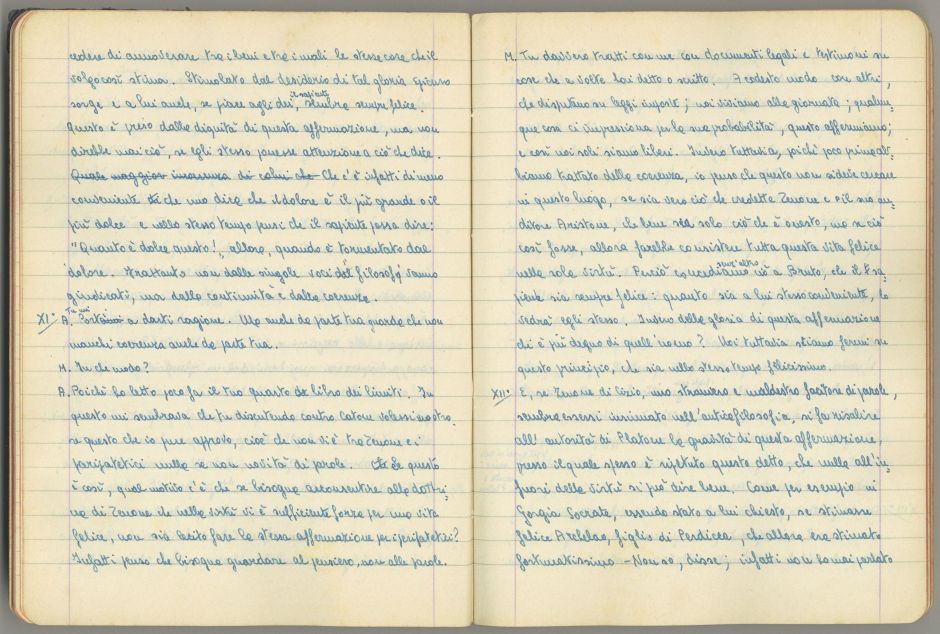 cedere di annoverare tra i beni e tra i mali le stesse cose che il
volgo così stima. Stimolato dal desiderio di tal gloria Epicuro
sorge e a lui anche, se piace agli dei, il sapiente sembra sempre felice.
Questo è preso dalla dignità di questa affermazione, ma non
direbbe mai ciò, se egli stesso ponesse attenzione a ciò che dice.
Quale maggior di colui che Che c'è infatti di meno
conveniente che uno dica che il dolore è il più grande o il
più dolce e nello stesso tempo pensi che il sapiente possa dire:
"Quanto è dolce questo!", allora, quando è tormentato dal
dolore. Attanto non dalle singole voci dei filosofi vanno
giudicati, ma dalla continuità e dalla coerenza.
XI: A. Tu mi Porti a darti ragione. Ma anche da parte tua guarda che non
manchi coerenza anche da parte tua.
M. In che modo?
A. Poiché ho letto poco fa il tuo quarto libro dei limiti. In
questo mi sembrava che tu discutendo contro Catone volessi mostra
re questo che io pure approvo, cioè che non vi è tra Zenone e i
peripatetici nulla se non novità di parole. Se questo
è così, qual motivo c'è che se bisogna acconsentire alla dottri-
na di Zenone che nella virtù vi è sufficiente forza per una vita
felice, non sia lecito fare la stessa affermazione per i peripatetici?
Infatti penso che bisogna guardare al pensiero, non alle parole.
M. Tu davvero tratti con me con documenti legali e testimoni su
cose che a volte hai detto o scritto. A codesto modo con altri,
che disputano su leggi imposte; noi viviamo alla giornata; qualun-
que cosa ci impressiona per la sua probabilità, questo affermiamo;
e così noi soli siamo liberi. Invero tuttavia, poichè poco prima ab-
biamo trattato della coerenza, io penso che questo non si deve cercare
in questo luogo, se sia vero ciò che credette Zenone e il suo au-
ditore Aristone, che bene sia solo ciò che è onesto, ma se ciò
così fosse, allora farebbe consistere tutta questa vita felice
nella sola virtù. Perciò concediamo senz'altro ciò a Bruto, che il sa-
piente sia sempre felice: quanto sia a lui stesso conveniente, lo
vedrà egli stesso. Invero della gloria di questa affermazione
chi è più degno di quell'uomo? Noi tuttavia stiamo fermi su
questo principio, che sia nello stesso tempo felicissimo.
XII: E, se Zenone di Cizio, uno straniero e maldestro facitore di parole,
sembra essersi insinuato nell'antica filosofia, si fa risalire
all'autorità di Platone la gravità di questa affermazione,
presso il quale spesso è ripetuto questo detto, che nulla all'in-
fuori della virtù si può dire bene. Come per esempio in
Gorgia Socrate, essendo stato a lui chiesto, se stimasse
felice Archelao, figlio di Perdicca, che allora era stimato
fortunatissimo - Non so, disse; infatti non ho mai parlato